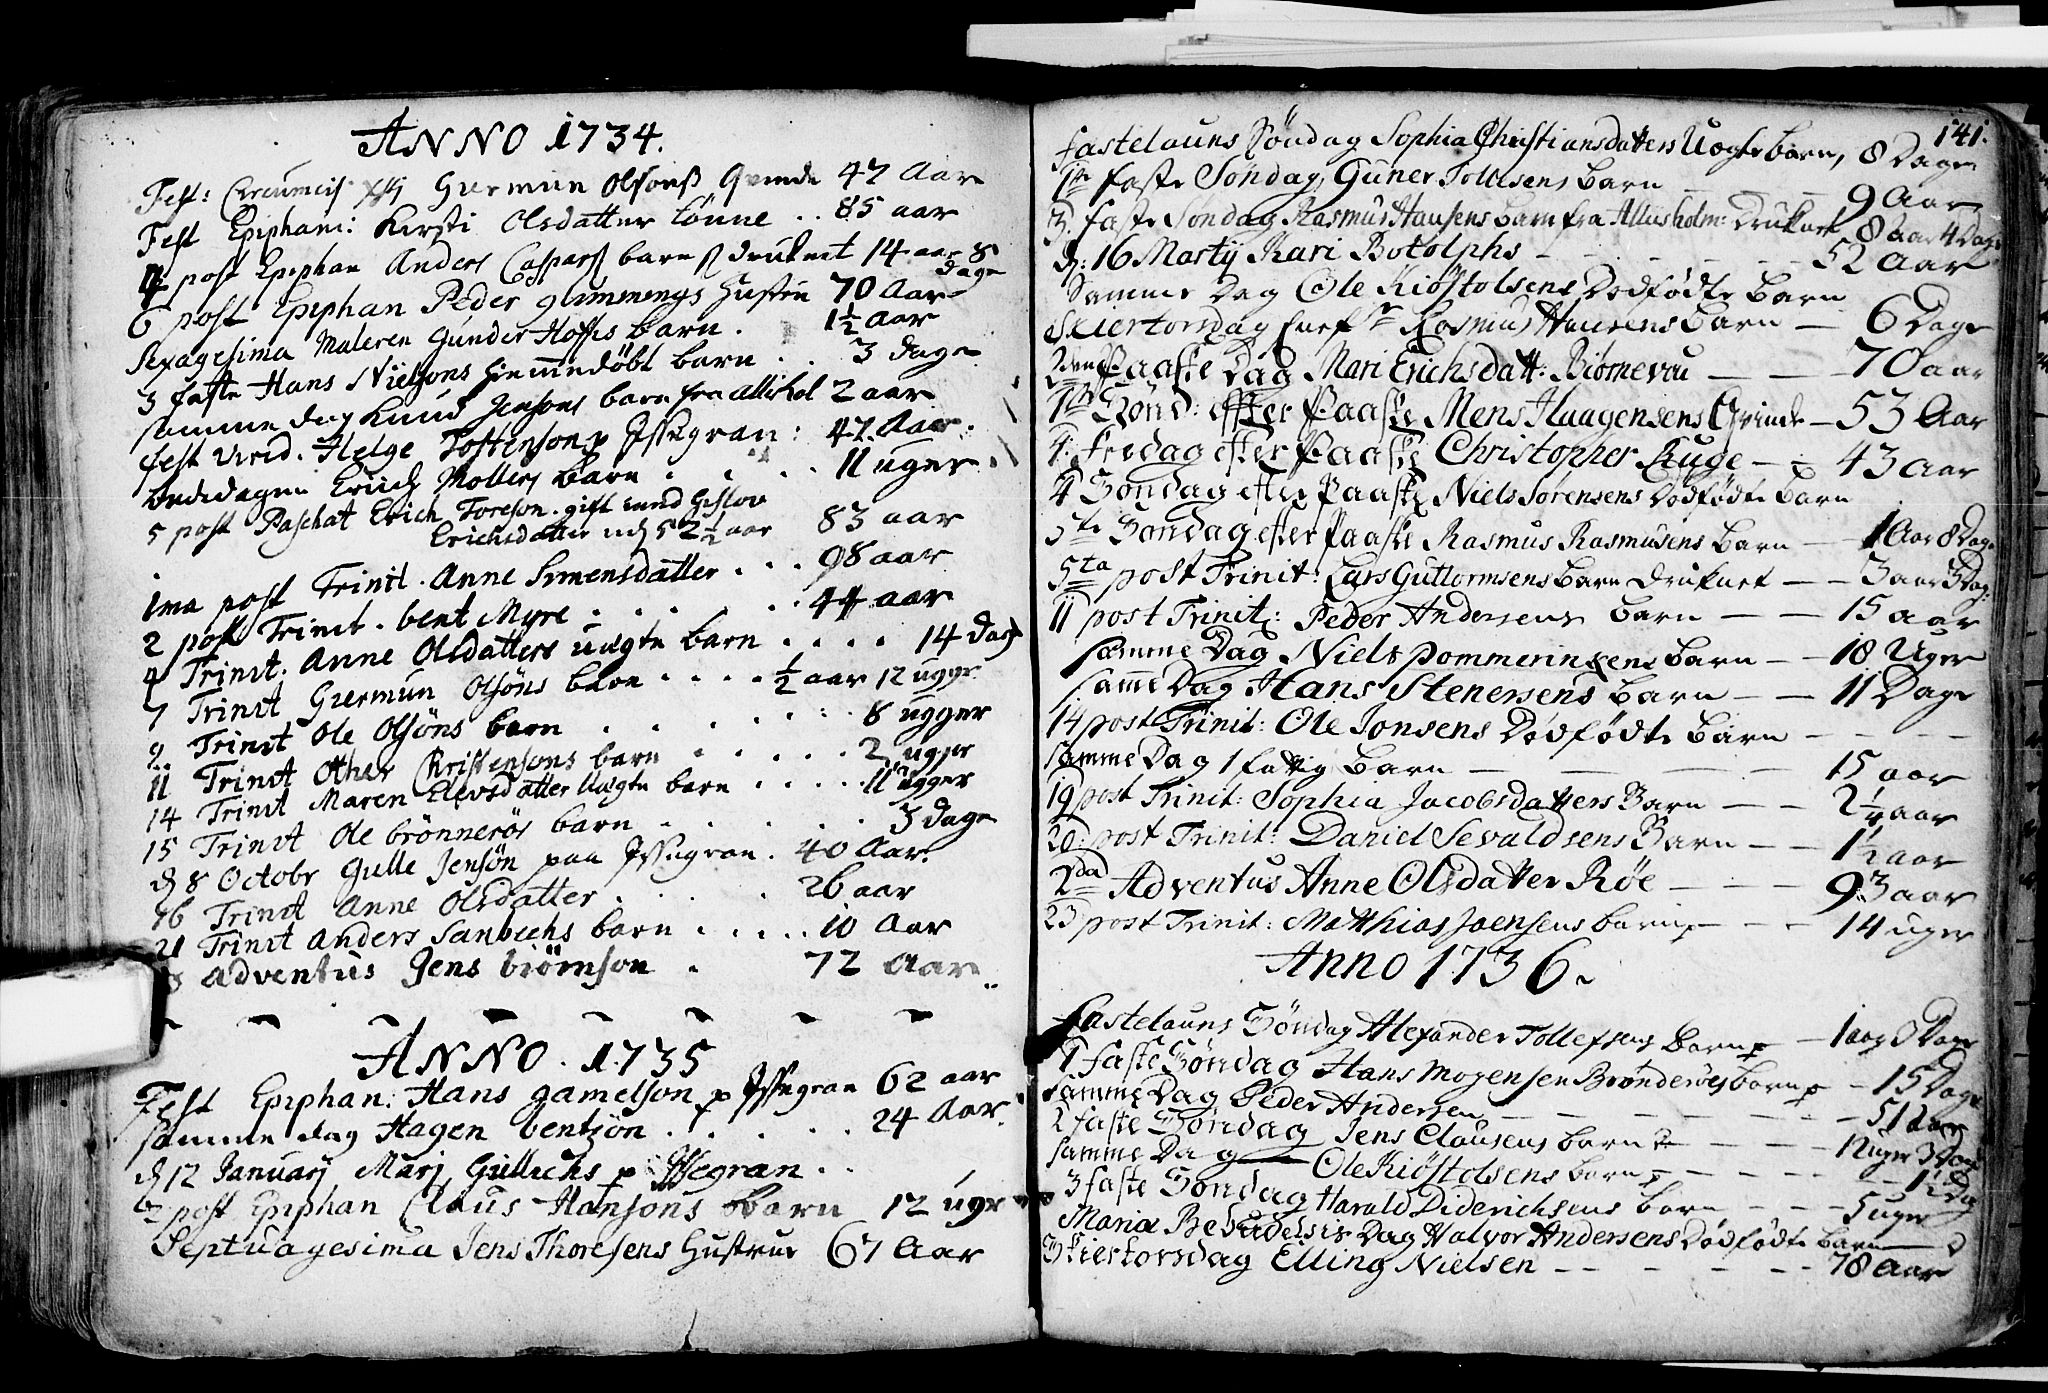 ANNO 1734.
Fest: Circumcis: Xsti Giermun Olsons Qvinde 47 Aar
Fest Epiphani: Kersti Olsdatter Lönne .. 85 aar
4 post Epiphan Anders Caspars barn druknet 14 aar 8 dage
6 post Epiphan Peder gummengs Hustru 70 Aar
Sexagesima Maleren Gunder Hoffis barn . 1½ Aar
3 faste Hans Nielsons hiemmedöbt barn . . 3 dage
samme dag Knud Jensons barn fra 2 aar
fest virid. Helge Tostenson p Issegran: 47 Aar.
bededagen Erich Mollers barn . . . . 11 uger
5 post Paschat Erich Toreson gift med Gislov
Erichsdatter udj 52½ aar 83 aar
1ma post Trinit. Anne Simensdatter . . . 98 aar
2 post Trinit. bent Myre . . . . . 44 aar
4 Trinit. Anne Olsdatters uægte barn . . . . 14 dage
7 Trinit Giermun Olsöns barn . . . . ½ aar 12 uger
9 Trinit Ole Olsöns barn . . . . . . 8 ugger
11 Trinit Other Christensons barn . . . . . 2 ugger
14 Trinit Maren Elevsdatter Uægte barn . . . . 11 ugger
15 Trinit Ole brönnerös barn . . . . . 3 dage
d 8 Octobr Gulle Jensön paa Issegran . 40 Aar.
16 Trinit Anne Olsdatter . . . . 26 aar
21 Trinit Anders Sanbechs barn . . . . . 10 Aar
3 Adventus Jens biörnson . 72 Aar
ANNO . 1735
Fest Epiphan: Hans gamelson p Issegran 62 aar
samme dag Hagen bentsön . . . . . 24 Aar.
d 12 Januarij Marj Gullichs p Issegran . .
post Epiphan Claus Hansons Barn 12 ugr
Septuagesima Jens Thoresens Hustrue 67 Aar
141.
Fastelauns Söndag Sophia Christiansdatters Uægte Barn, 8 Dage
1te Faste Söndag Guner Tollefsens Barn — — 9 Aar
3. Faste Söndag Rasmus Hansens Barn fra Allesholm: Druknet 8 Aar 4 Dage
d: 16 Martij Kari Botolphs — — — — 52 Aar
Samme Dag Ole Kiöstolsens Dödfödte Barn
Skiertorsdag Rasmus Hansens Barn — 6 Dage
2den Paaske Dag Mari Erichsdatt: Biörnevau — — 70 aar
1te Sönd: effter Paaske Mens Haagensens Qvinde — 53 Aar
4: Fredag efter Paaske Christopher Kuge — — 43 Aar
4 Söndag efter Paaske Niels Sörensens Dödfödte Barn
5te Söndag efter Paaske Rasmus Rasmusens Barn — 1 Aar 8 Dage
5ta post Trinit: Lars Guttormsens Barn Druknet — — 3 aar 3 Dag:
11 post Trinit: Peder Andersens Barn — — 15 aar
Samme Dag Niels Pommerinkens Barn — — 18 Uger
samme Dag Hans Stenersens Barn — — 11 Dage
14 post Trinit: Ole Jonsens Dödfödte Barn — — — —
samme Dag 1 fattig Barn — — — 15 aar
19 post Trinit: Sophia Jacobsdatters Barn — — 2½ aar
20: post Trinit: Daniel Sevaldsens Barn — — 1½ aar
2da Adventus Anne Olsdatter Röe — — — 93 aar
23 post Trinit: Matthias Joensens Barn — — 14 uger
Anno 1736.
Fastelauns Söndag Alexander Tollefsens Barn — 1 aar Dage
1 Faste Söndag Hans Mogensen Brönderöes barn — 15 Dage
samme Dag Peder Andersen — — — — 51 Aar
2 Faste Söndag Jens Clausens Barn — — — 12 uger 3 Dage
samme Dag Ole Kiöstolsens Barn — — — 1½ Dag
3 Faste Söndag Harald Diderichsens Barn — — — 5 uger
Mariæ Bebudelsis Dag Halvor Andersens Dödfödte Barn —
Skiertorsdag Elling Nielsen — — — — 78 Aar